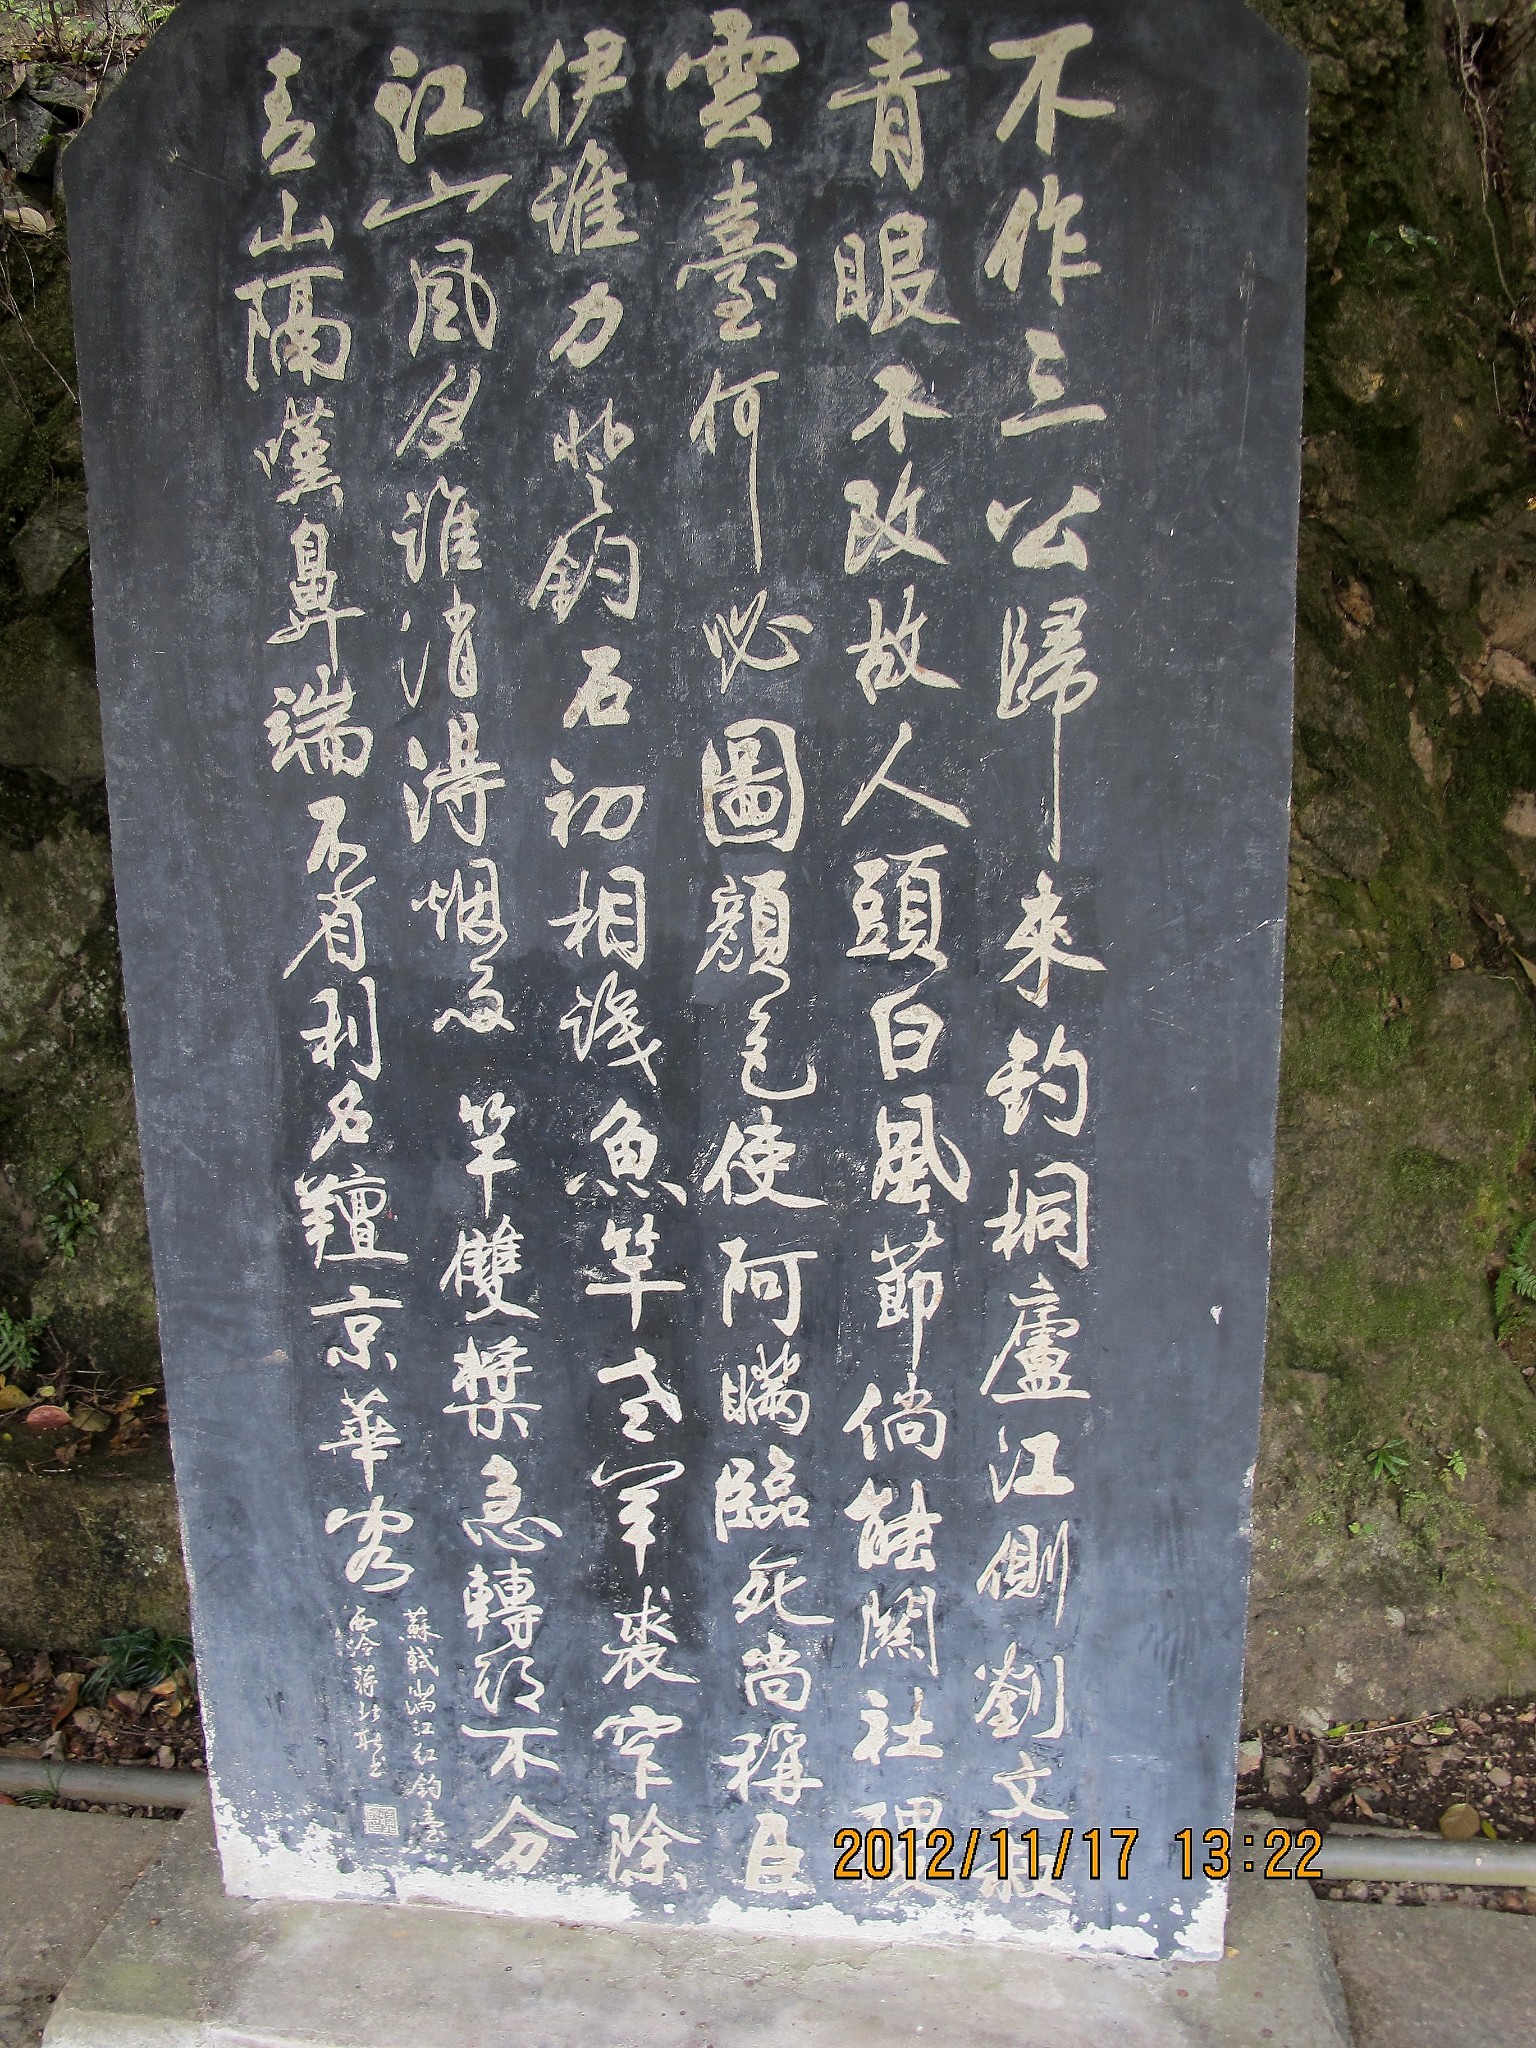 不作三公歸來釣桐廬江側劉文叔
青眼不改故人頭白風節倘能關社稷
雲臺何必圖顏色使阿瞞臨死尚稱臣
伊誰力登釣石初相識魚竿老羊裘窄除
江山風月誰消得烟雨竿雙槳急轉頭不分
青山隔嘆鼻端不省利名羶京華客
蘇軾滿江紅釣臺
西泠蔣北耿書
2012/11/17 13:22